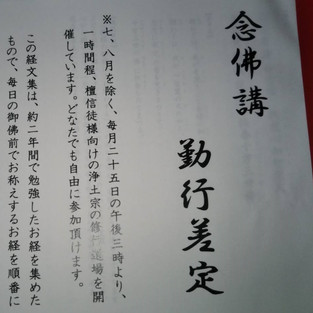 念佛講
勤行差定
※七、八月を除く、毎月二十五日の午後三時より、
一時間程、檀信徒様向けの浄土宗の修行道場を開
催しています。どなたでも自由に参加頂けます。
この経文集は、約二年間で勉強したお経を集めた
もので、毎日の御佛前でお称えするお経を順番に